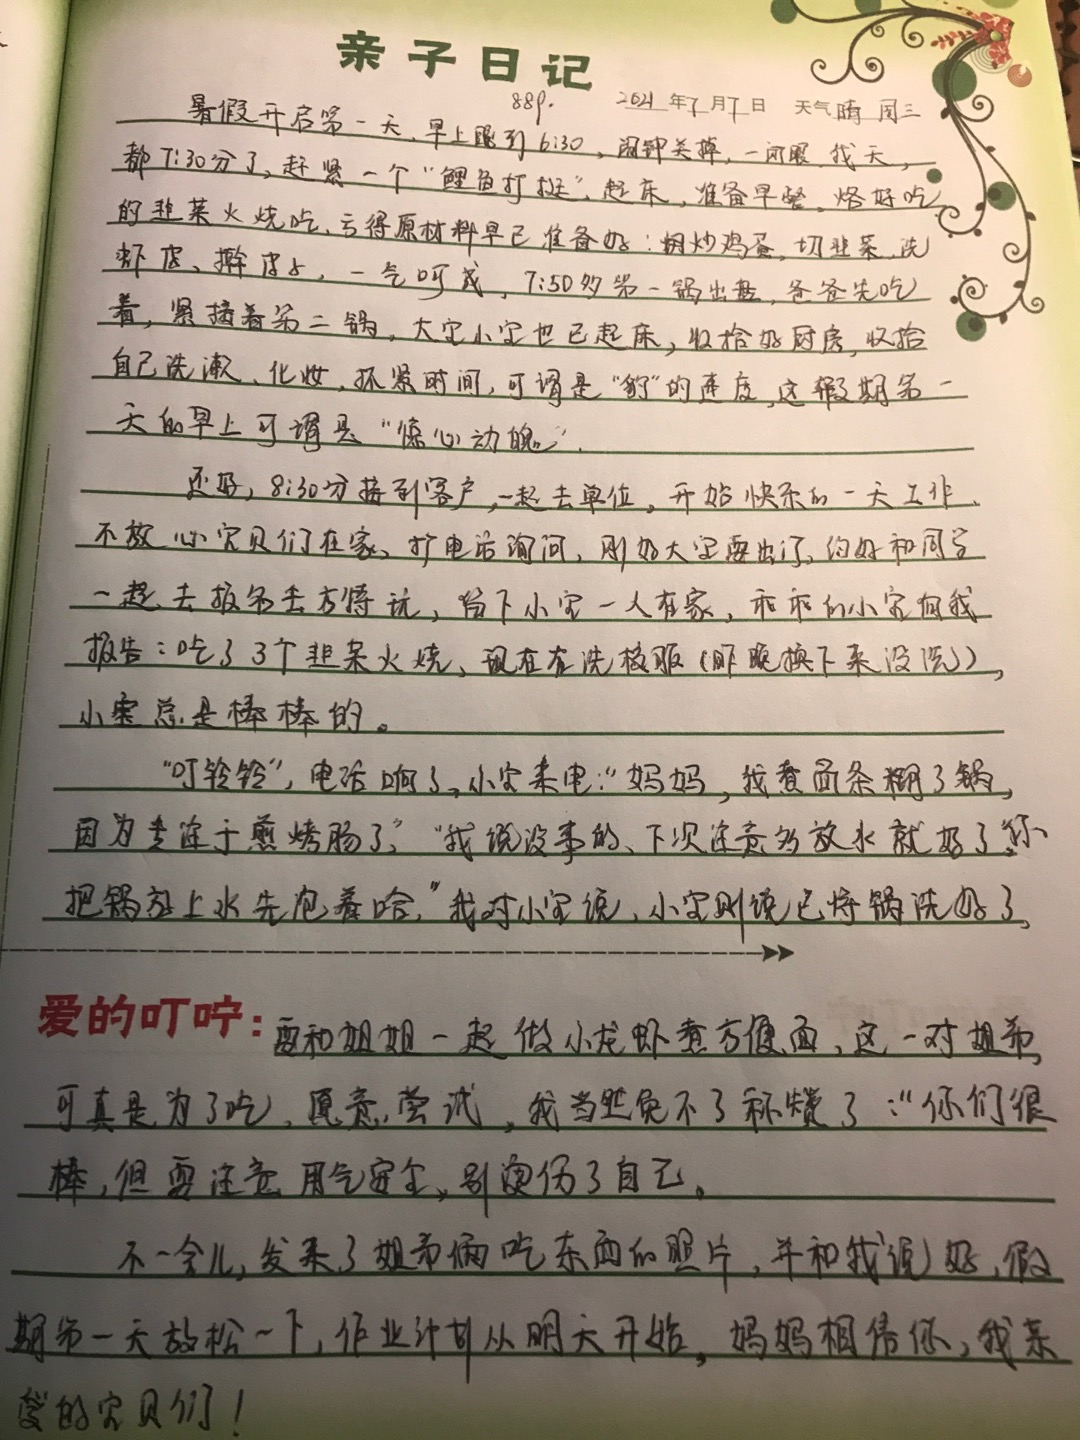 亲子日记
88P. 2021年7月7日 天气晴 周三
暑假开启第一天,早上醒到6:30,闹钟关掉,一闭眼,我天,
都7:30分了,赶紧一个“鲤鱼打挺”,起床,准备早餐,烙好吃
的韭菜火烧吃,亏得原材料早已准备好:炒鸡蛋,切韭菜,洗
虾皮、擀皮,一气呵成,7:50多第一锅出盘,爸爸先吃
着,紧接着第二锅,大宝小宝也已起床,收拾好厨房,收拾
自己洗漱、化妆,抓紧时间,可谓是“豹”的速度,这假期第一
天的早上可谓是“惊心动魄”.
还好,8:30分接到客户,一起去单位,开始快乐的一天工作、
不放心宝贝们在家,打电话询问,刚好大宝要出门,约好和同学
一起去报名去方特玩,留下小宝一人在家,乖乖的小宝向我
报告:吃了3个韭菜火烧、现在在洗校服(昨晚换下来没洗),
小宝总是棒棒的。
“叮铃铃”,电话响了,小宝来电:“妈妈,我煮面条糊了锅,
因为专注于煎烤肠了”,“我说没事的、下次注意多放水就好了,你
把锅放上水先泡着哈,”我对小宝说,小宝则说已将锅洗好了,
爱的叮咛:要和姐姐一起做小龙虾煮方便面,这一对姐弟,
可真是为了吃,愿意尝试,我当然免不了称赞了:“你们很
棒,但要注意用气安全,别烫伤了自己。
不一会儿,发来了姐弟俩吃东西的照片,并和我说好,假
期第一天放松一下,作业计划从明天开始,妈妈相信你,我亲
爱的宝贝们!